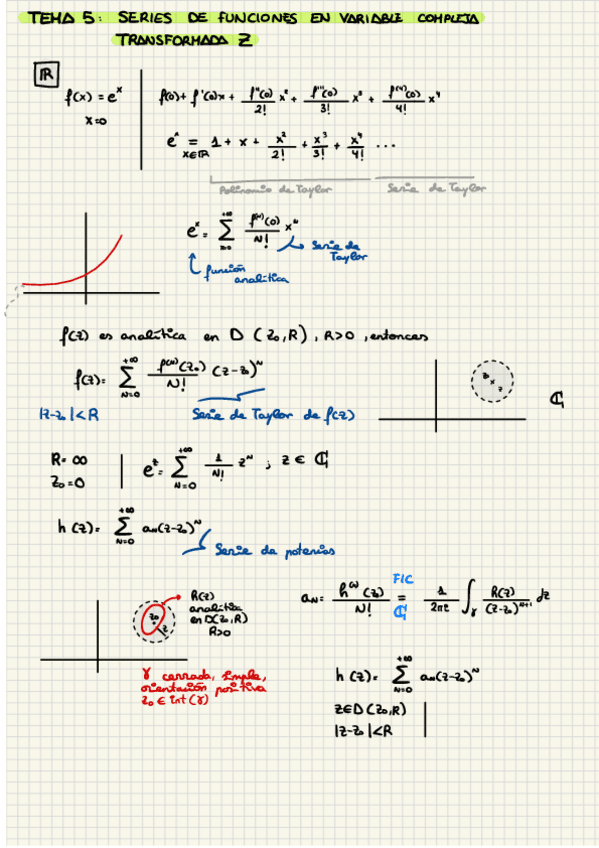 TEMA 5: SERIES DE FUNCIONES EN VARIABLE COMPLEJA
TRANSFORMADA Z
ℝ
f(x) = e^x
x=0
f(0) + f'(0)x + f''(0)/2! x² + f'''(0)/3! x³ + f^(4)(0)/4! x⁴
e^x = 1 + x + x²/2! + x³/3! + x⁴/4! ...
x∈ℝ
Polinomio de Taylor
Serie de Taylor
e^x = Σ f^(n)(0)/N! x^n
+∞
Serie de
Taylor
función
analítica
f(z) es analítica en D (z₀,R), R>0, entonces
f(z) = Σ_{N=0}^{+∞} f^(N)(z₀)/N! (z-z₀)^N
z₀
z
ℂ
|z-z₀|<R
Serie de Taylor de f(z)
R = ∞
z₀=0
e^z = Σ_{N=0}^{+∞} 1/N! z^N ; z ∈ ℂ
h(z) = Σ_{N=0}^{+∞} a_N(z-z₀)^N
Serie de potencias
h(z)
analítica
en D(z₀,R)
R>0
z₀
γ cerrada, simple,
orientación positiva
z₀ ∈ int(γ)
a_N = h^(N)(z₀)/N! = 1/2πi ∫_γ h(z)/(z-z₀)^{N+1} dz
FIC
ℂ
h(z) = Σ_{N=0}^{+∞} a_N(z-z₀)^N
z∈D(z₀,R)
|z-z₀|<R